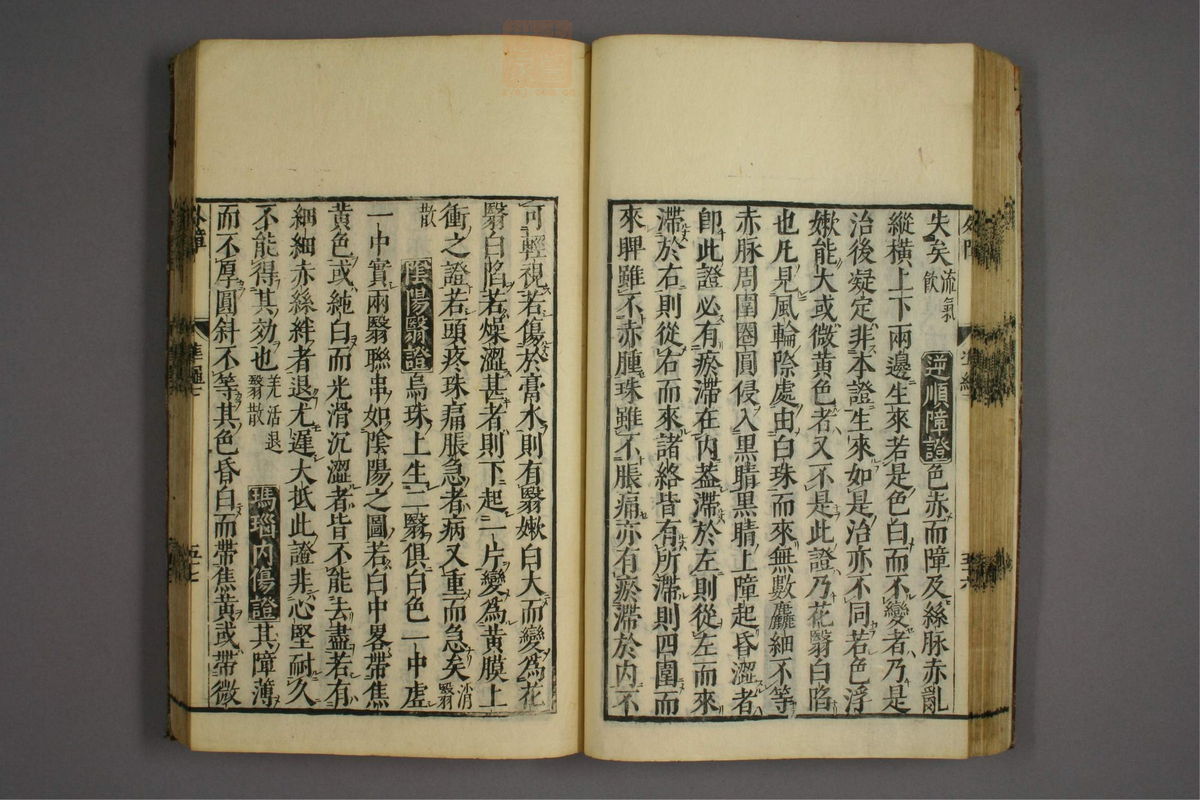 失矣流氣飲 逆順障證色赤而障及絲脉赤亂
縱橫上下兩邊生來若是色白而不變者乃是
治後凝定非本證生來如是治亦不同若色浮
嫰能大或微黃色者又不是此證乃花翳白陷
也凡見風輪際處由白珠而來無數麤細不等
赤脉周圍圈圓侵入黑睛黑睛上障起昏澀者
卽此證必有瘀滯在內葢滯於左則從左而來
滯於右則從右而來諸絡皆有所滯則四圍而
來睥雖不赤腫珠雖不脹痛亦有瘀滯於內不
可輕視若傷於膏水則有翳嫰白大而變爲花
翳白陷若燥澀甚者則下起一片變爲黃膜上
衝之證若頭疼珠痛脹急者病又重而急矣消翳
散 陰陽翳證烏珠上生二翳俱白色一中虛
一中實兩翳聯串如陰陽之圖若白中畧帶焦
黃色或純白而光滑沉澀者皆不能去盡若有
細細赤絲絆者退尤遲大抵此證非心堅耐久
不能得其効也羌活退翳散 瑪瑙內傷證其障薄
而不厚圓斜不等其色昏白而帶焦黃或帶微
外障
五十七